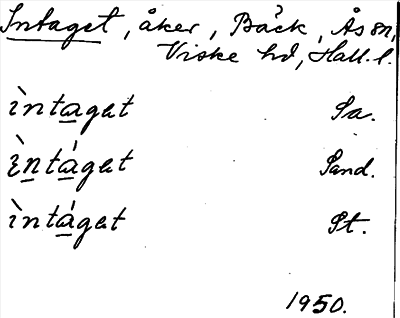 Intaget, åker, Bäck, Ås sn,
Viske hd, Hall. l.
ìntaget Sa.
ìntáget Sand.
ìntáget St.
1950.